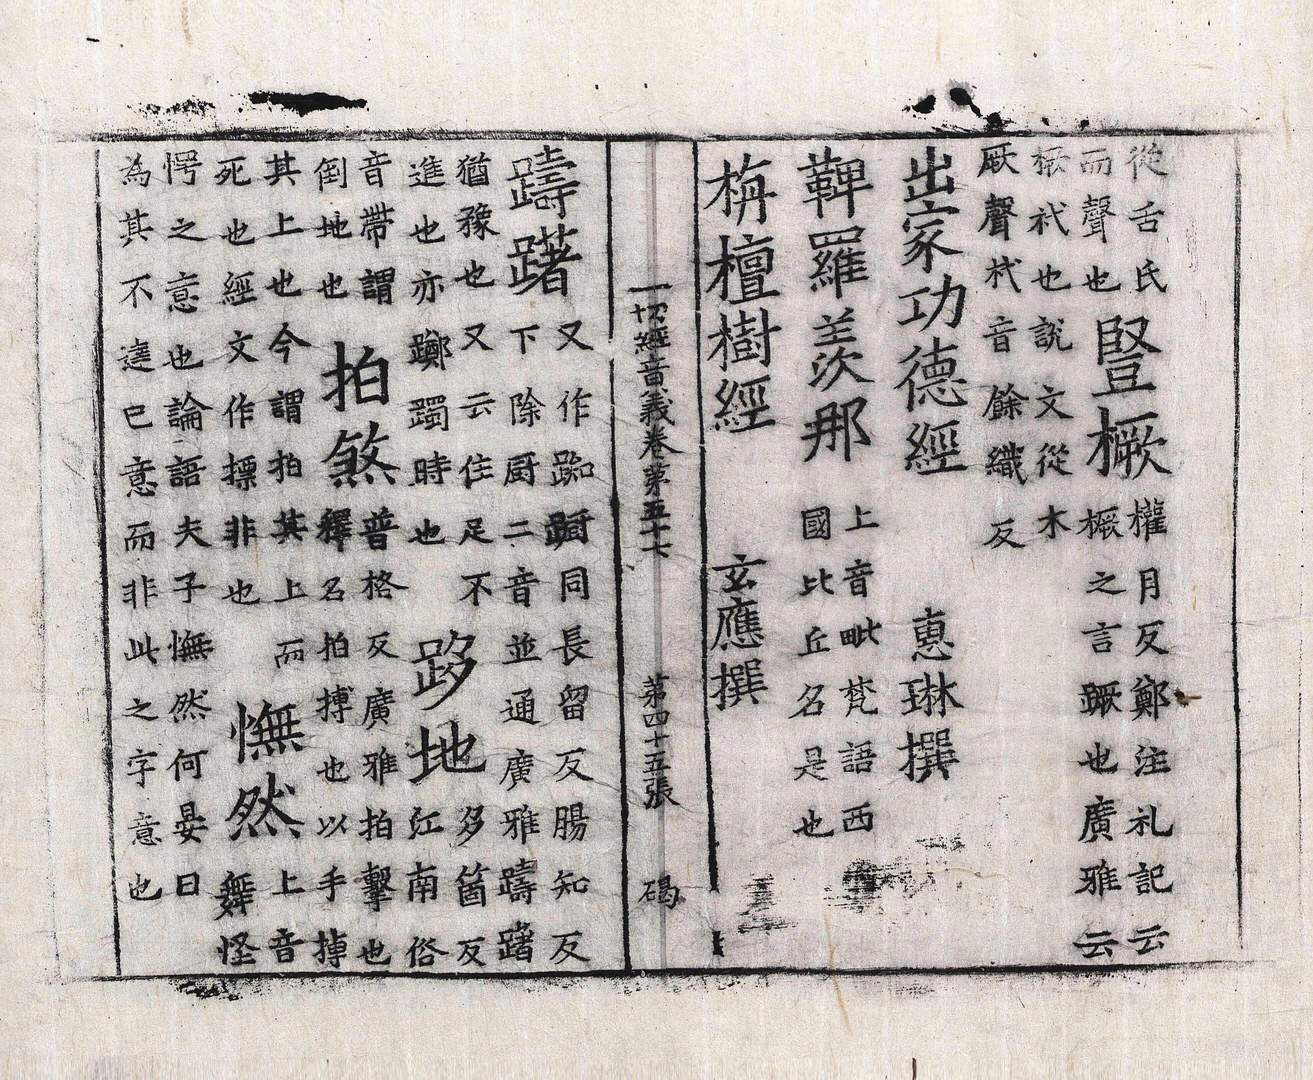 從舌氏
而聲也
豎橛
權月反鄭注礼記云
橛之言蹶也廣雅云
橛杙也說文從木
厥聲杙音餘織反
出家功德經 惠琳撰
鞞羅羨那
上音毗梵語西
國比丘名是也
栴檀樹經 玄應撰
一切經音義卷第五十七 第四十五張 碣
躊躇
又作踟同長留反腸知反
下除厨二音並通廣雅躊躇
猶豫也又云住足不
進也亦躑躅時也
跢地
多箇反
江南俗
音帶謂
倒地也
拍煞
普格反廣雅拍擊也
釋名拍搏也以手搏
其上也今謂拍其上而
死也經文作摽非也
憮然
上音
舞怪
愕之意也論語夫子憮然何晏曰
為其不達己意而非此之字意也